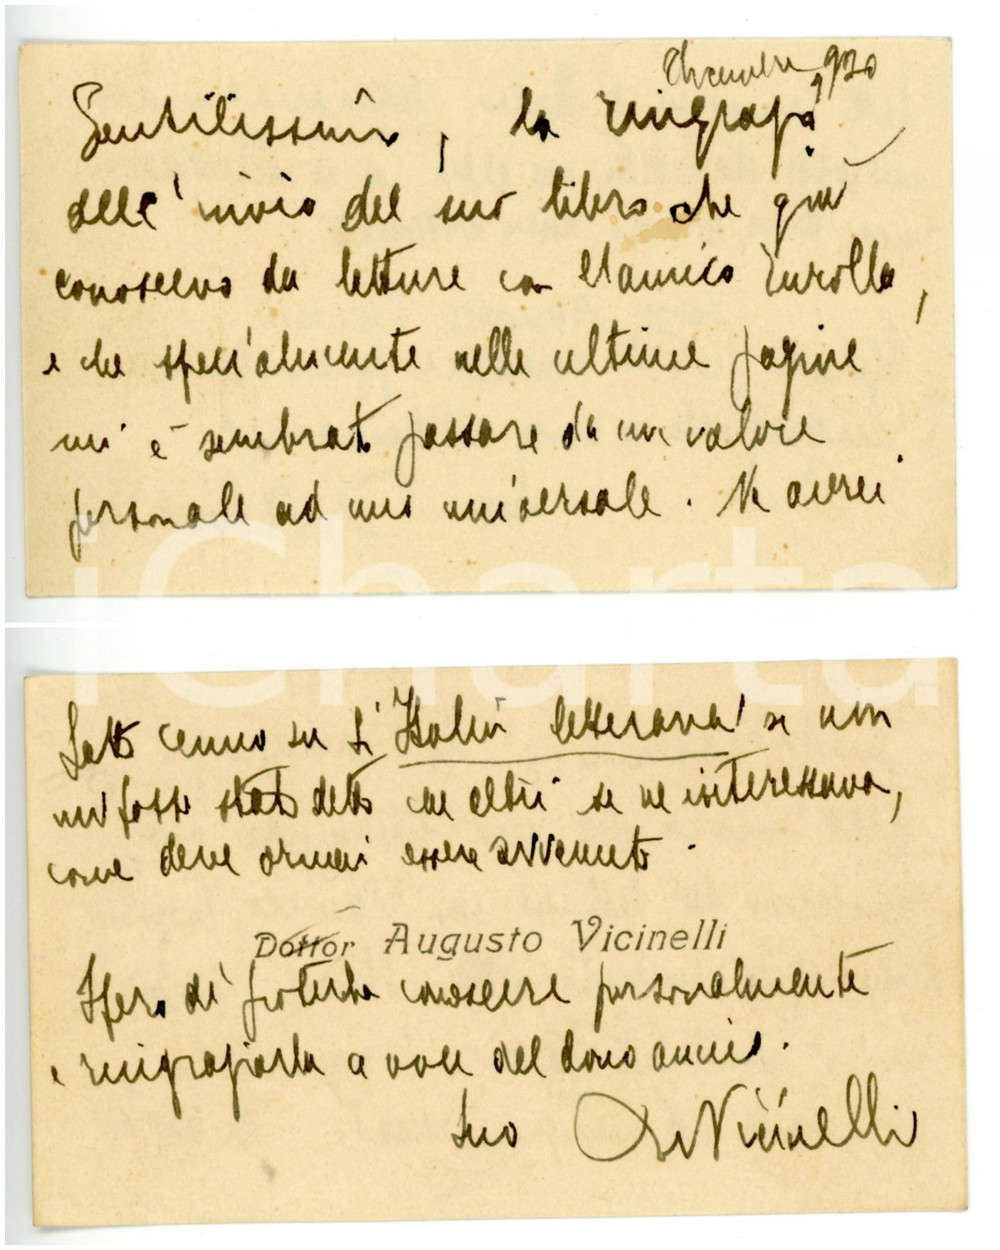 Dicembre 1930
Gentilissimo, la ringrazio
dell'invio del suo libro che già
conoscevo da letture con l'amico
e che specialmente nelle ultime pagine
mi è sembrato passare da un valore
personale ad uno universale. Ne avrei
fatto cenno su L'Italia letteraria se non
mi fosse stato detto che altri se ne interessava,
come deve ormai essere avvenuto.
Dottor Augusto Vicinelli
Spero di poterla conoscere personalmente
e ringraziarla a voce del dono amico.
Suo A. Vicinelli
iCharta